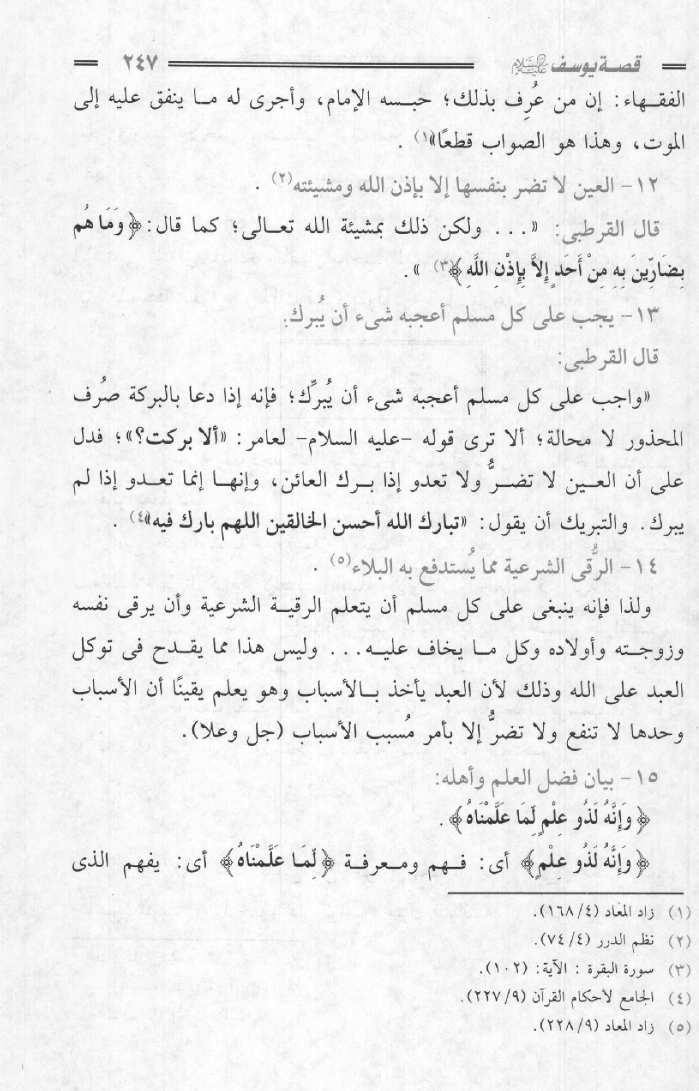 قصة يوسف عليه السلام ٢٤٧
الفقهاء: إن من عُرِف بذلك؛ حبسه الإمام، وأجرى له ما ينفق عليه إلى
الموت، وهذا هو الصواب قطعًا»(١) .
١٢- العين لا تضر بنفسها إلا بإذن الله ومشيئته(٢) .
قال القرطبى: «... ولكن ذلك بمشيئة الله تعالى؛ كما قال: ﴿وَمَا هُم
بِضَارِّينَ بِهِ مِنْ أَحَدٍ إِلاَّ بِإِذْنِ اللَّهِ﴾(٣) ».
١٣- يجب على كل مسلم أعجبه شىء أن يُبرك.
قال القرطبى:
«واجب على كل مسلم أعجبه شىء أن يُبرِّك؛ فإنه إذا دعا بالبركة صُرف
المحذور لا محالة؛ ألا ترى قوله -عليه السلام- لعامر: «ألا بركت؟»؛ فدل
على أن العين لا تضرُّ ولا تعدو إذا برك العائن، وإنها إنما تعدو إذا لم
يبرك. والتبريك أن يقول: «تبارك الله أحسن الخالقين اللهم بارك فيه»(٤) .
١٤- الرُّقى الشرعية مما يُستدفع به البلاء(٥) .
ولذا فإنه ينبغى على كل مسلم أن يتعلم الرقية الشرعية وأن يرقى نفسه
وزوجته وأولاده وكل ما يخاف عليه... وليس هذا مما يقدح فى توكل
العبد على الله وذلك لأن العبد يأخذ بالأسباب وهو يعلم يقينًا أن الأسباب
وحدها لا تنفع ولا تضرُّ إلا بأمر مُسبب الأسباب (جل وعلا).
١٥- بيان فضل العلم وأهله:
﴿وَإِنَّهُ لَذُو عِلْمٍ لِّمَا عَلَّمْنَاهُ﴾ .
﴿وَإِنَّهُ لَذُو عِلْمٍ﴾ أى: فهم ومعرفة ﴿لِّمَا عَلَّمْنَاهُ﴾ أى: يفهم الذى
(١) زاد المعاد (١٦٨/٤).
(٢) نظم الدرر (٧٤/٤).
(٣) سورة البقرة : الآية: (١٠٢).
(٤) الجامع لأحكام القرآن (٢٢٧/٩).
(٥) زاد المعاد (٢٢٨/٩).